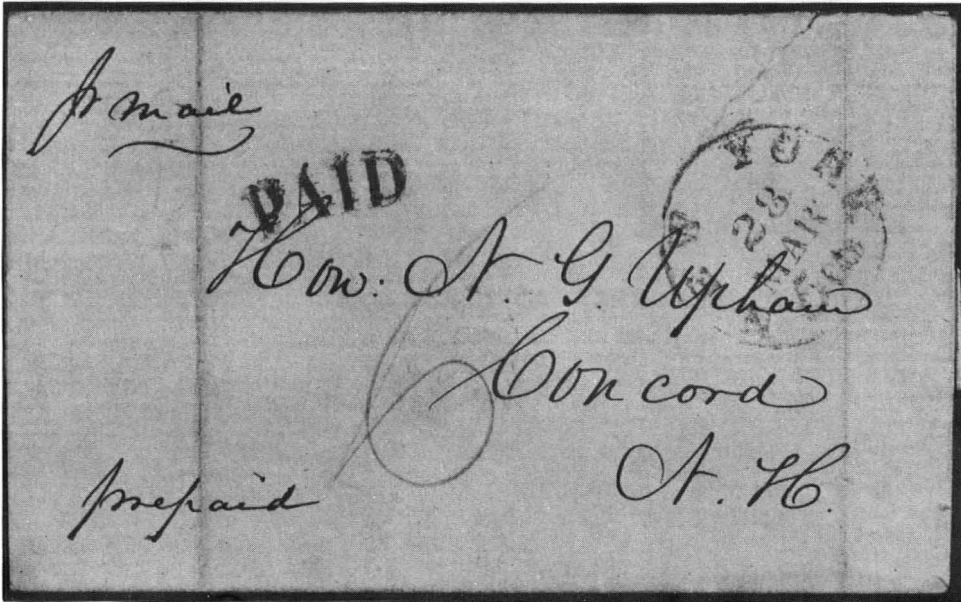 pr mail
PAID
NEW YORK
28
MAR
Hon: N. G. Upham
6
Concord
N. H.
prepaid